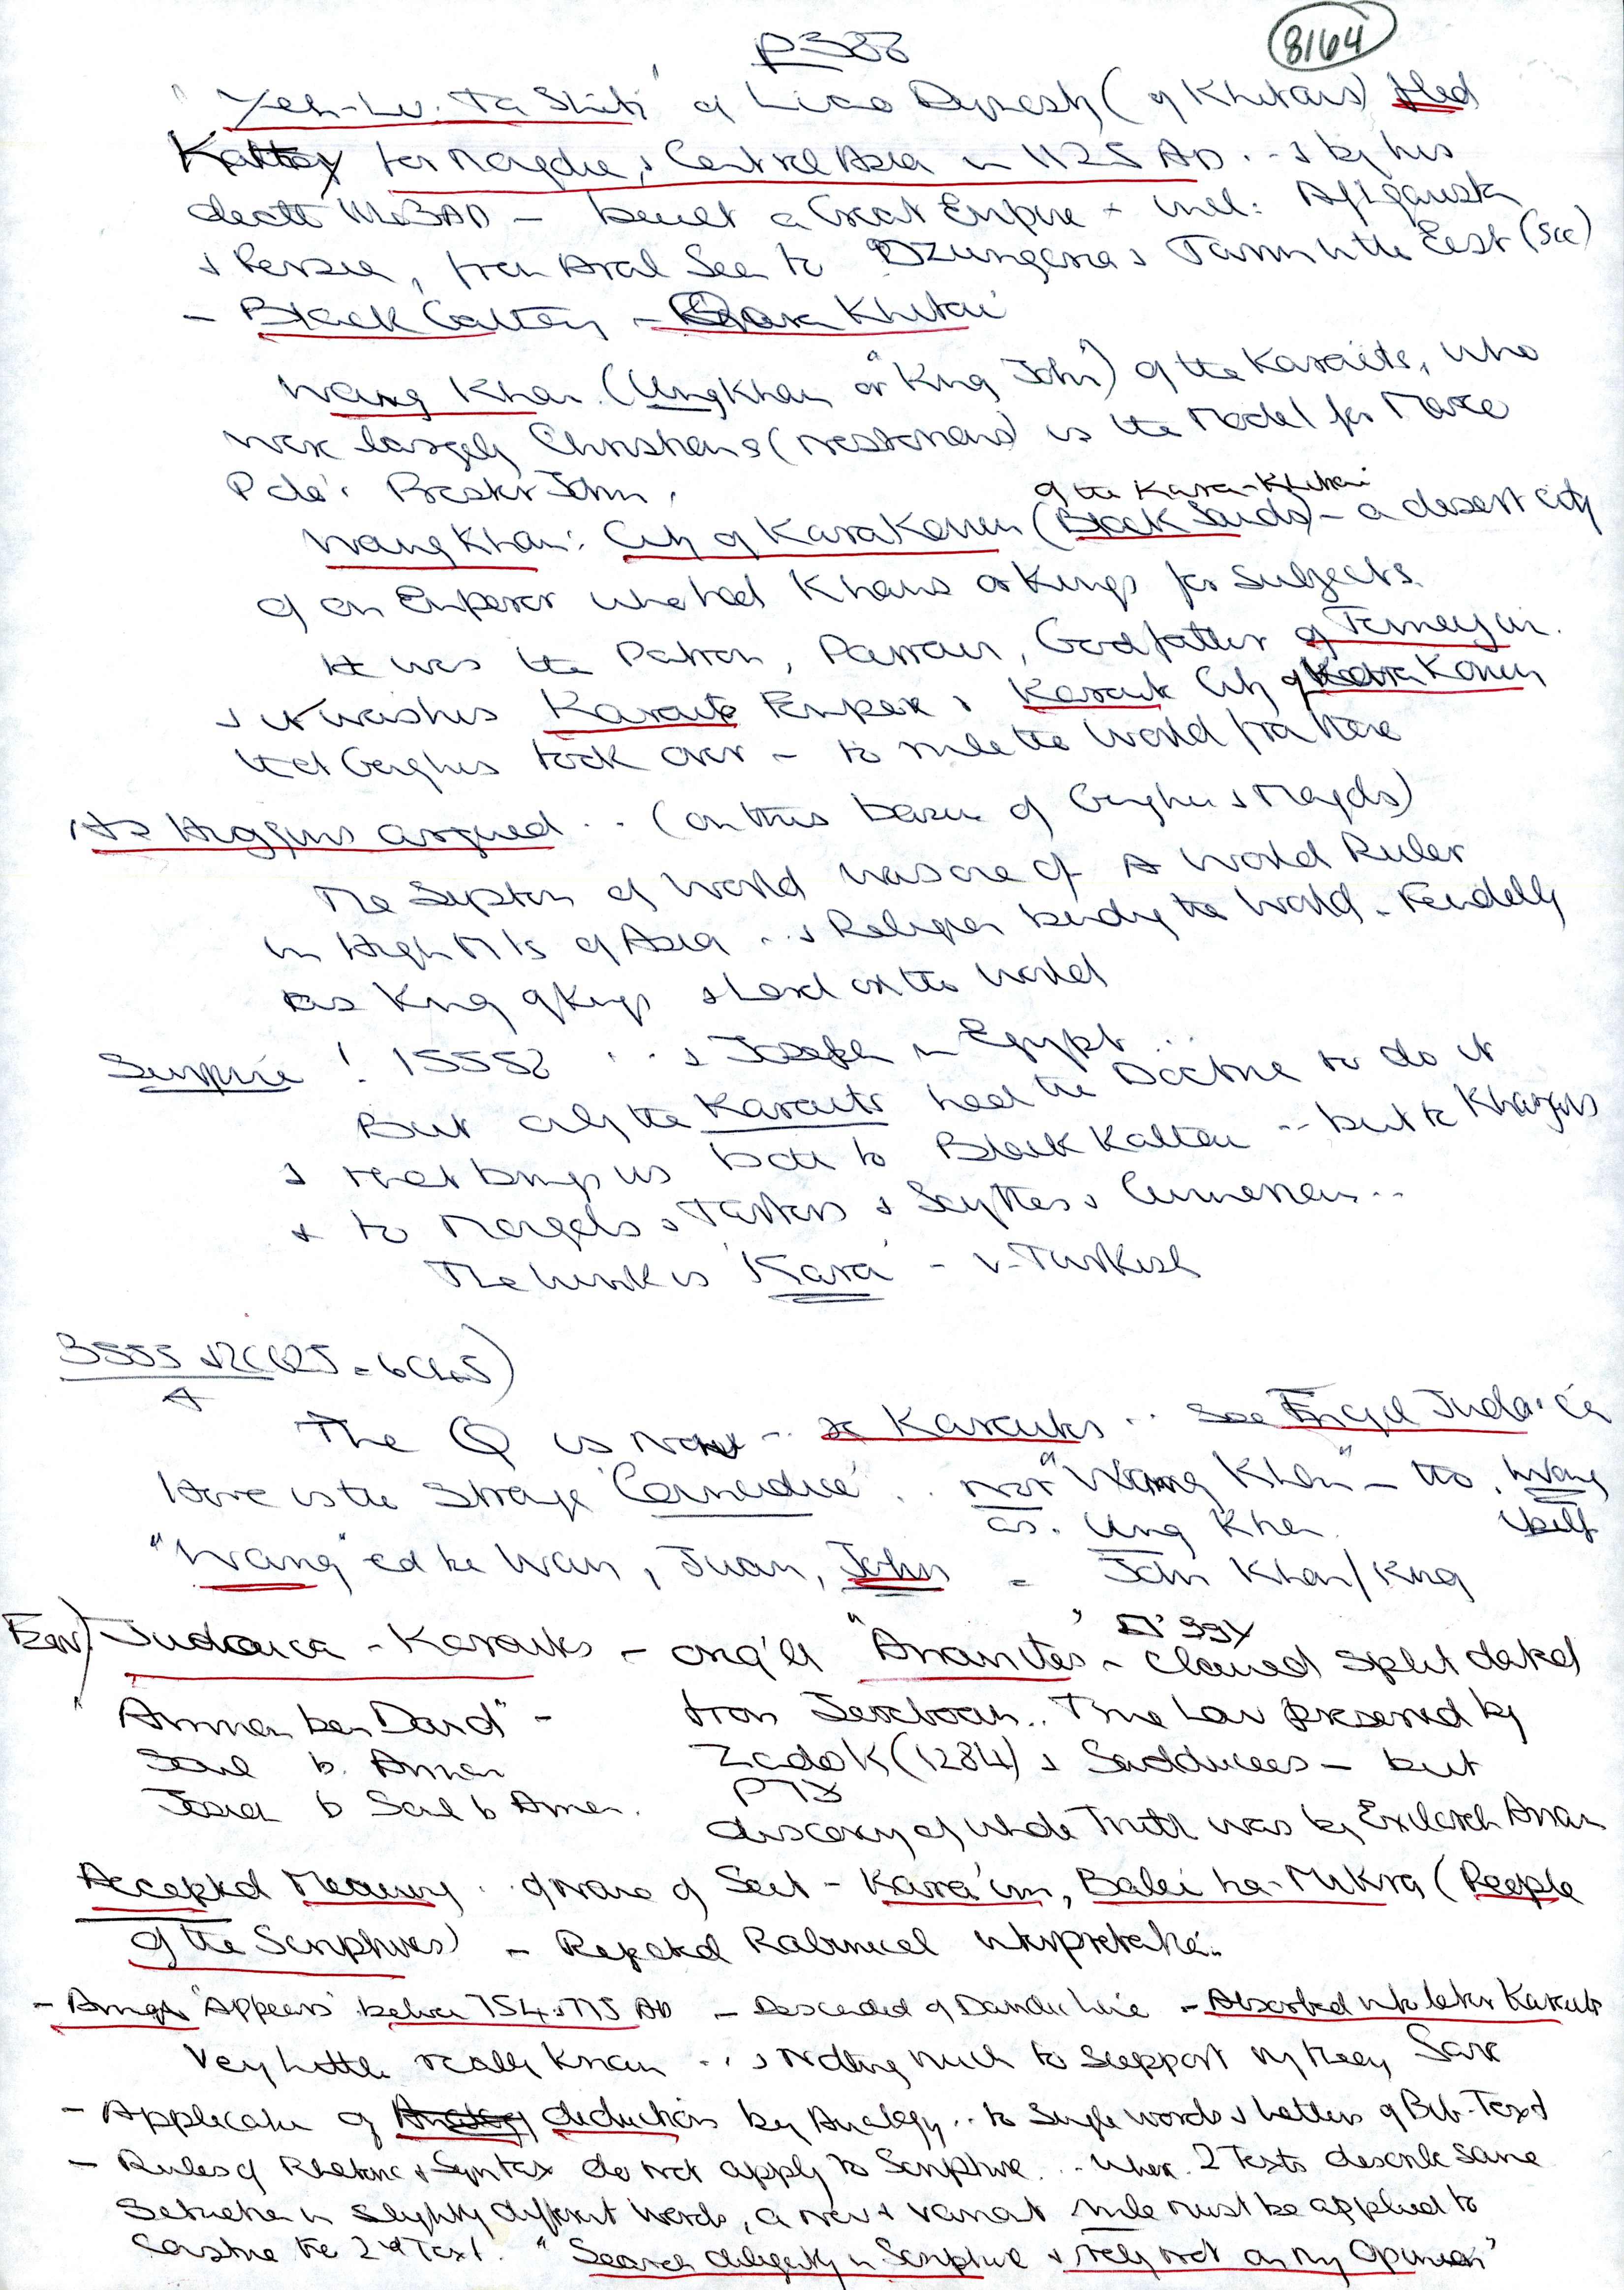 P388
8164
"Yeh-Lu. Ta Shih" of Liao Dynesty (of Khitais) fled
Kattay for Mongolia, & Central Asia in 1125 AD .. & by his
death 1143AD – built a Great Empire + incl: Afhganstn
& Persia, from Aral Sea to Dzungaria & Tarim in the East (sic)
– Black Cattay – Qara Khitai
Wang Khan (Ung Khan or "King John") of the Karaits, who
were largely Christians (Nestorians) is the Model for Marco
Polo's Prester John.
of the Kara-Khitai
Wang Khan's City of KaraKorum (Black Sands) – a desert city
of an Emperor who had Khans or Kings for subjects.
It was the Patron, Parrain, Godfather of Temeyin.
& it was his Karaits Empire & Karait City of KaraKorum
that Genghis took over – to rule the World from there
As Higgins argued .. (on this basis of Genghis & Mongols)
The System of World was one of A World Ruler
in High Mts of Asia .. & Religion binding the World – Feudally
as King of Kings & Lord of the World
Surprise ! 15558 .. & Joseph in Egypt ..
But only the Karaits had the Doctrine to do it
& that brings us back to Black Kattai .. but to Khazars
& to Mongols & Tartars & Scythes & Cimmerians ..
The link is 'Kara' – v. Turkish
The Q is now .. & Karaits .. See Encycl Judaica
Here is the Strange 'Coincidence' .. not "Wang Khan" – tho. Wang
as. Ung Khan. itself
"Wang" cd be Wan, Juan, John = John Khan/King
Judaica – Karaits – orig'lly "Ananites" – Claimed split dated
"Annan ben David" – from Jeroboam.. True Law preserved by
Saul b. Annan Zadok (1284) & Sadducees – but
Josiah b Saul b Annan. discovery of whole Truth was by Exilarch Anan
Accepted Meaning .. of name of Sect – Kara'im, Balei ha-Mikra (People
of the Scriptures) – Rejected Rabinnical interpretation..
'Appears' between 754 & 775 AD – Descended of Davidic Line – Absorbed into later Karaits
Very little really known .. & nothing much to support my theory Save
– Application of deductions by Analogy .. to single words & letters of Bib. Text
– Rules of Rhetoric & Syntax do not apply to Scripture .. When 2 Texts describe same
Situation in slightly different words, a new & variant rule must be applied to
Construe the 2nd Text. "Search diligently in Scripture & rely not on my Opinion"